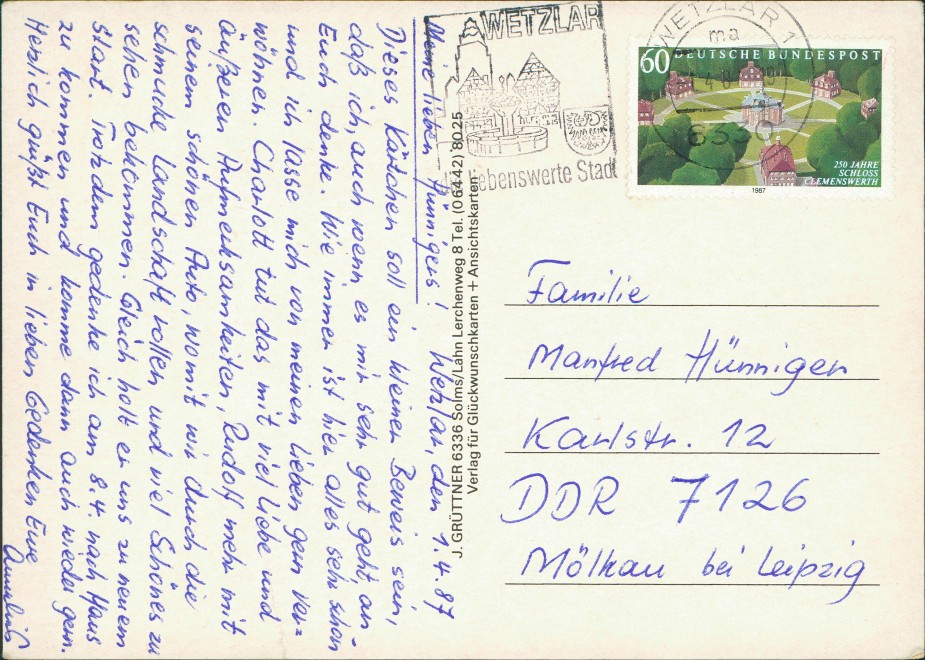 Meine lieben Hünnigens! Wetzlar, den 1.4.87
Dieses Kärtchen soll ein kleiner Beweis sein,
daß ich, auch wenn es mir sehr gut geht, an
Euch denke. Wie immer ist hier alles sehr schön
und ich lasse mich von meinen Lieben gern ver=
wöhnen. Charlott tut das mit viel Liebe und
äußeren Aufmerksamkeiten, Rudolf mehr mit
seinem schönen Auto, womit wir durch die
schmucke Landschaft rollen und viel Schönes zu
sehen bekommen. Gleich holt er uns zu neuem
Start. Trotzdem gedenke ich am 8.4. nach Haus
zu kommen und komme dann auch wieder gern.
Herzlich grüßt Euch in lieben Gedenken Eure
J. GRÜTTNER 6336 Solms/Lahn Lerchenweg 8 Tel. (0 64 42) 80 25
Verlag für Glückwunschkarten + Ansichtskarten
WETZLAR
lebenswerte Stadt
WETZLAR 1
ma
6330
60 DEUTSCHE BUNDESPOST
250 JAHRE
SCHLOSS
CLEMENSWERTH
1987
Familie
Manfred Hünnigen
Karlstr. 12
DDR 7126
Mölkau bei Leipzig